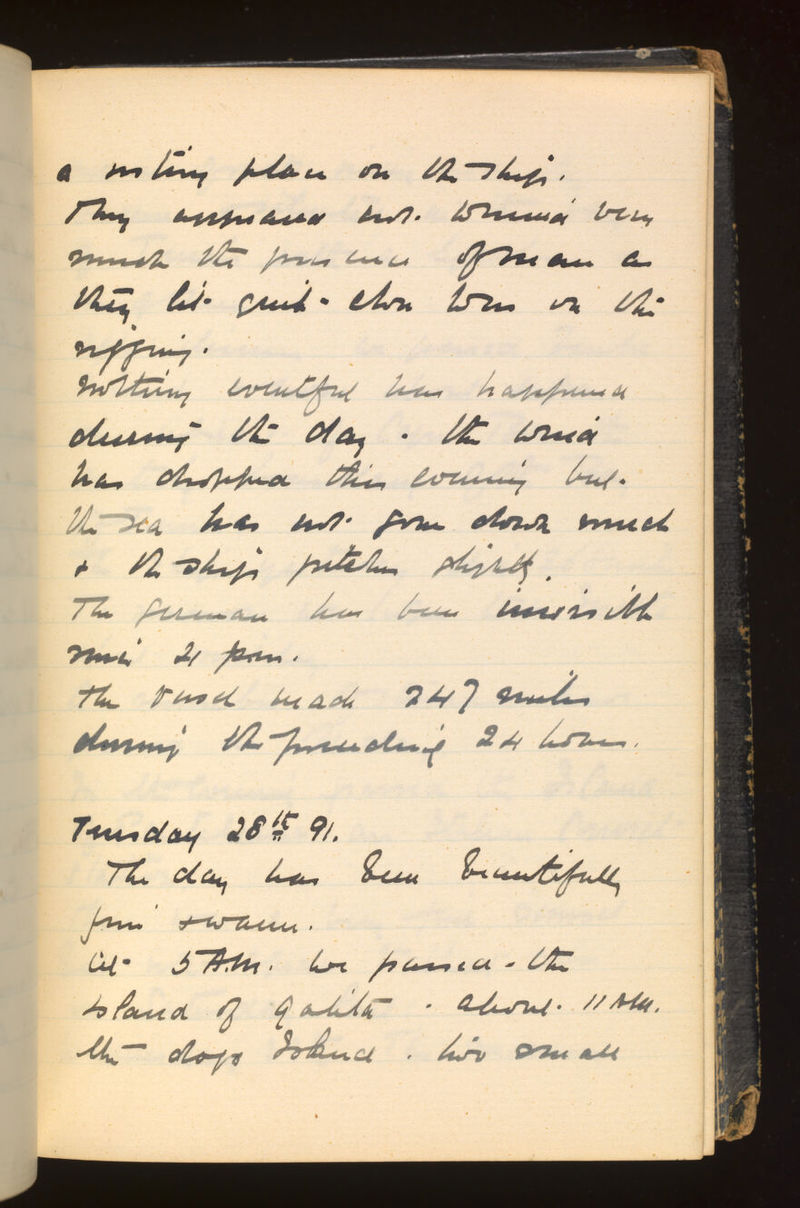 a resting place on the ship.
They appeared not to mind very
much the presence of man as
they lit quite close to us on the
rigging.
nothing eventful has happened
during the day. the wind
has dropped this evening but
the sea has not gone down much
& the ship pitches slightly.
The German has been invisible
since 4 pm.
the vessel made 247 miles
during the preceding 24 hours.
Tuesday 28th 91.
The day has been beautifully
fine & warm.
at 5 A.M. we passed the
Island of Galita. about 11 AM.
the dogs Island. two small